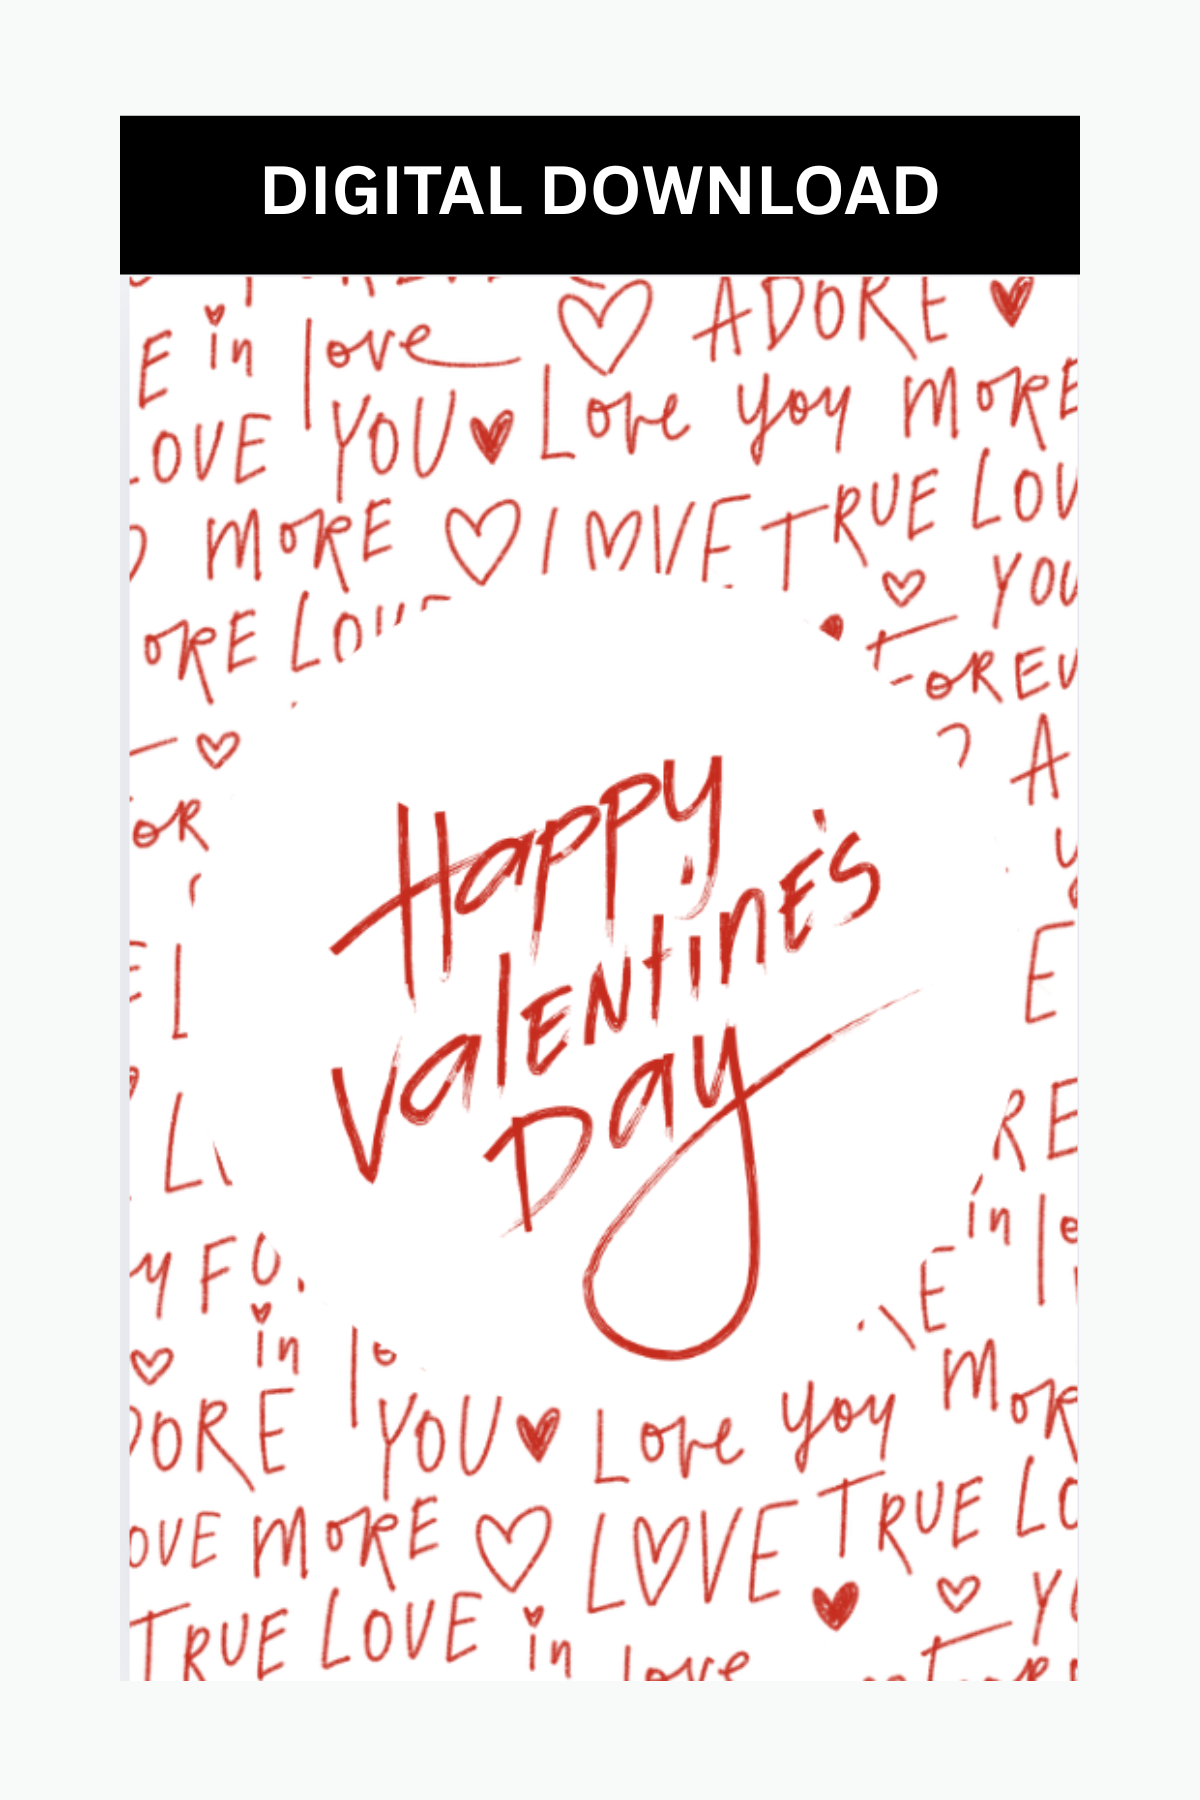 DIGITAL DOWNLOAD
ADORE
E in love
LOVE YOU Love you MORE
MORE LOVE TRUE LOV
YOU
ORE LO
FOREV
A
OR
E
E L
RE
L
in lo
Y FO
E
in lo
MOR
DORE YOU Love you
OVE MORE LOVE TRUE LO
TRUE LOVE in love
Happy
Valentine's
Day